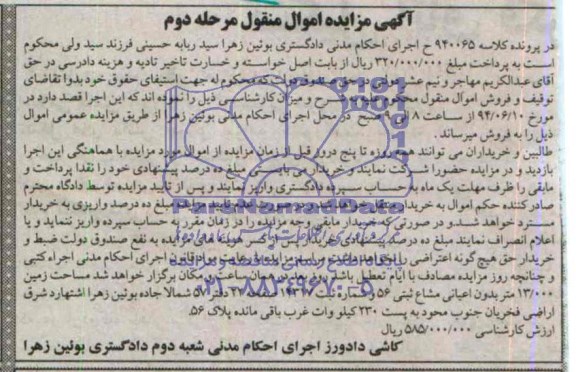 آگهی مزایده اموال منقول مرحله دوم
در پرونده کلاسه ۹۴۰۰۶۵ ح اجرای احکام مدنی دادگستری بوئین زهرا سید ربابه حسینی فرزند سید ولی محکوم
است به پرداخت مبلغ ۳۲۰/۰۰۰/۰۰۰ ریال از بابت اصل خواسته و خسارت تاخیر تادیه و هزینه دادرسی در حق
آقای عبدالکریم مهاجر و نیم عشر دولتی در حق صندوق دولت که محکوم له جهت استیفای حقوق خود بدوا تقاضای
توقیف و فروش اموال منقول محکوم علیه به شرح و میزان کارشناسی ذیل را نموده اند که این اجرا قصد دارد در
مورخ ۹۴/۰۶/۱۰ از ساعت ۸ الی ۹ صبح در محل اجرای احکام مدنی بوئین زهرا از طریق مزایده عمومی اموال
ذیل را به فروش میرساند.
طالبین و خریداران می توانند همه روزه تا پنج روز قبل از زمان مزایده از اموال مورد مزایده با هماهنگی این اجرا
بازدید و در مزایده حضورا شرکت نمایند و خریدار می بایستی مبلغ ده درصد پیشنهادی خود را نقدا پرداخت و
مابقی را ظرف مهلت یک ماه به حساب سپرده دادگستری واریز نمایند و پس از تایید مزایده توسط دادگاه محترم
صادر کننده حکم اموال به خریدار منتقل خواهد شد و در صورت عدم تایید مزایده مبلغ ده درصد واریزی به خریدار
مسترد خواهد شد و در صورتی که خریدار مابقی وجه مزایده را در زمان مقرر به حساب سپرده واریز ننماید و یا
اعلام انصراف نمایند مبلغ ده درصد پیشنهادی خریدار پس از کسر هزینه های مزایده به نفع صندوق دولت ضبط و
خریدار حق هیچ گونه اعتراضی را نخواهد داشت مزایده با رعایت قانون اجرای احکام مدنی اجراء کتبی
و چنانچه روز مزایده مصادف با ایام تعطیل باشد روز بعد در همان ساعت و مکان برگزار خواهد شد مساحت زمین
۱۳/۰۰۰ متر بدون اعیانی مشاع ثبتی ۵۶ و شماره ثبت صفحه دفتر شمالا جاده بوئین زهرا اشتهارد شرق
اراضی فخریان جنوب محود به پست ۲۳۰ کیلو وات غرب باقی مانده پلاک ۵۶.
ارزش کارشناسی ۵۸۵/۰۰۰/۰۰۰ ریال
کاشی دادورز اجرای احکام مدنی شعبه دوم دادگستری بوئین زهرا
ParsNamadData
۰۲۱-۸۸۳۴۹۶۷۰-۵